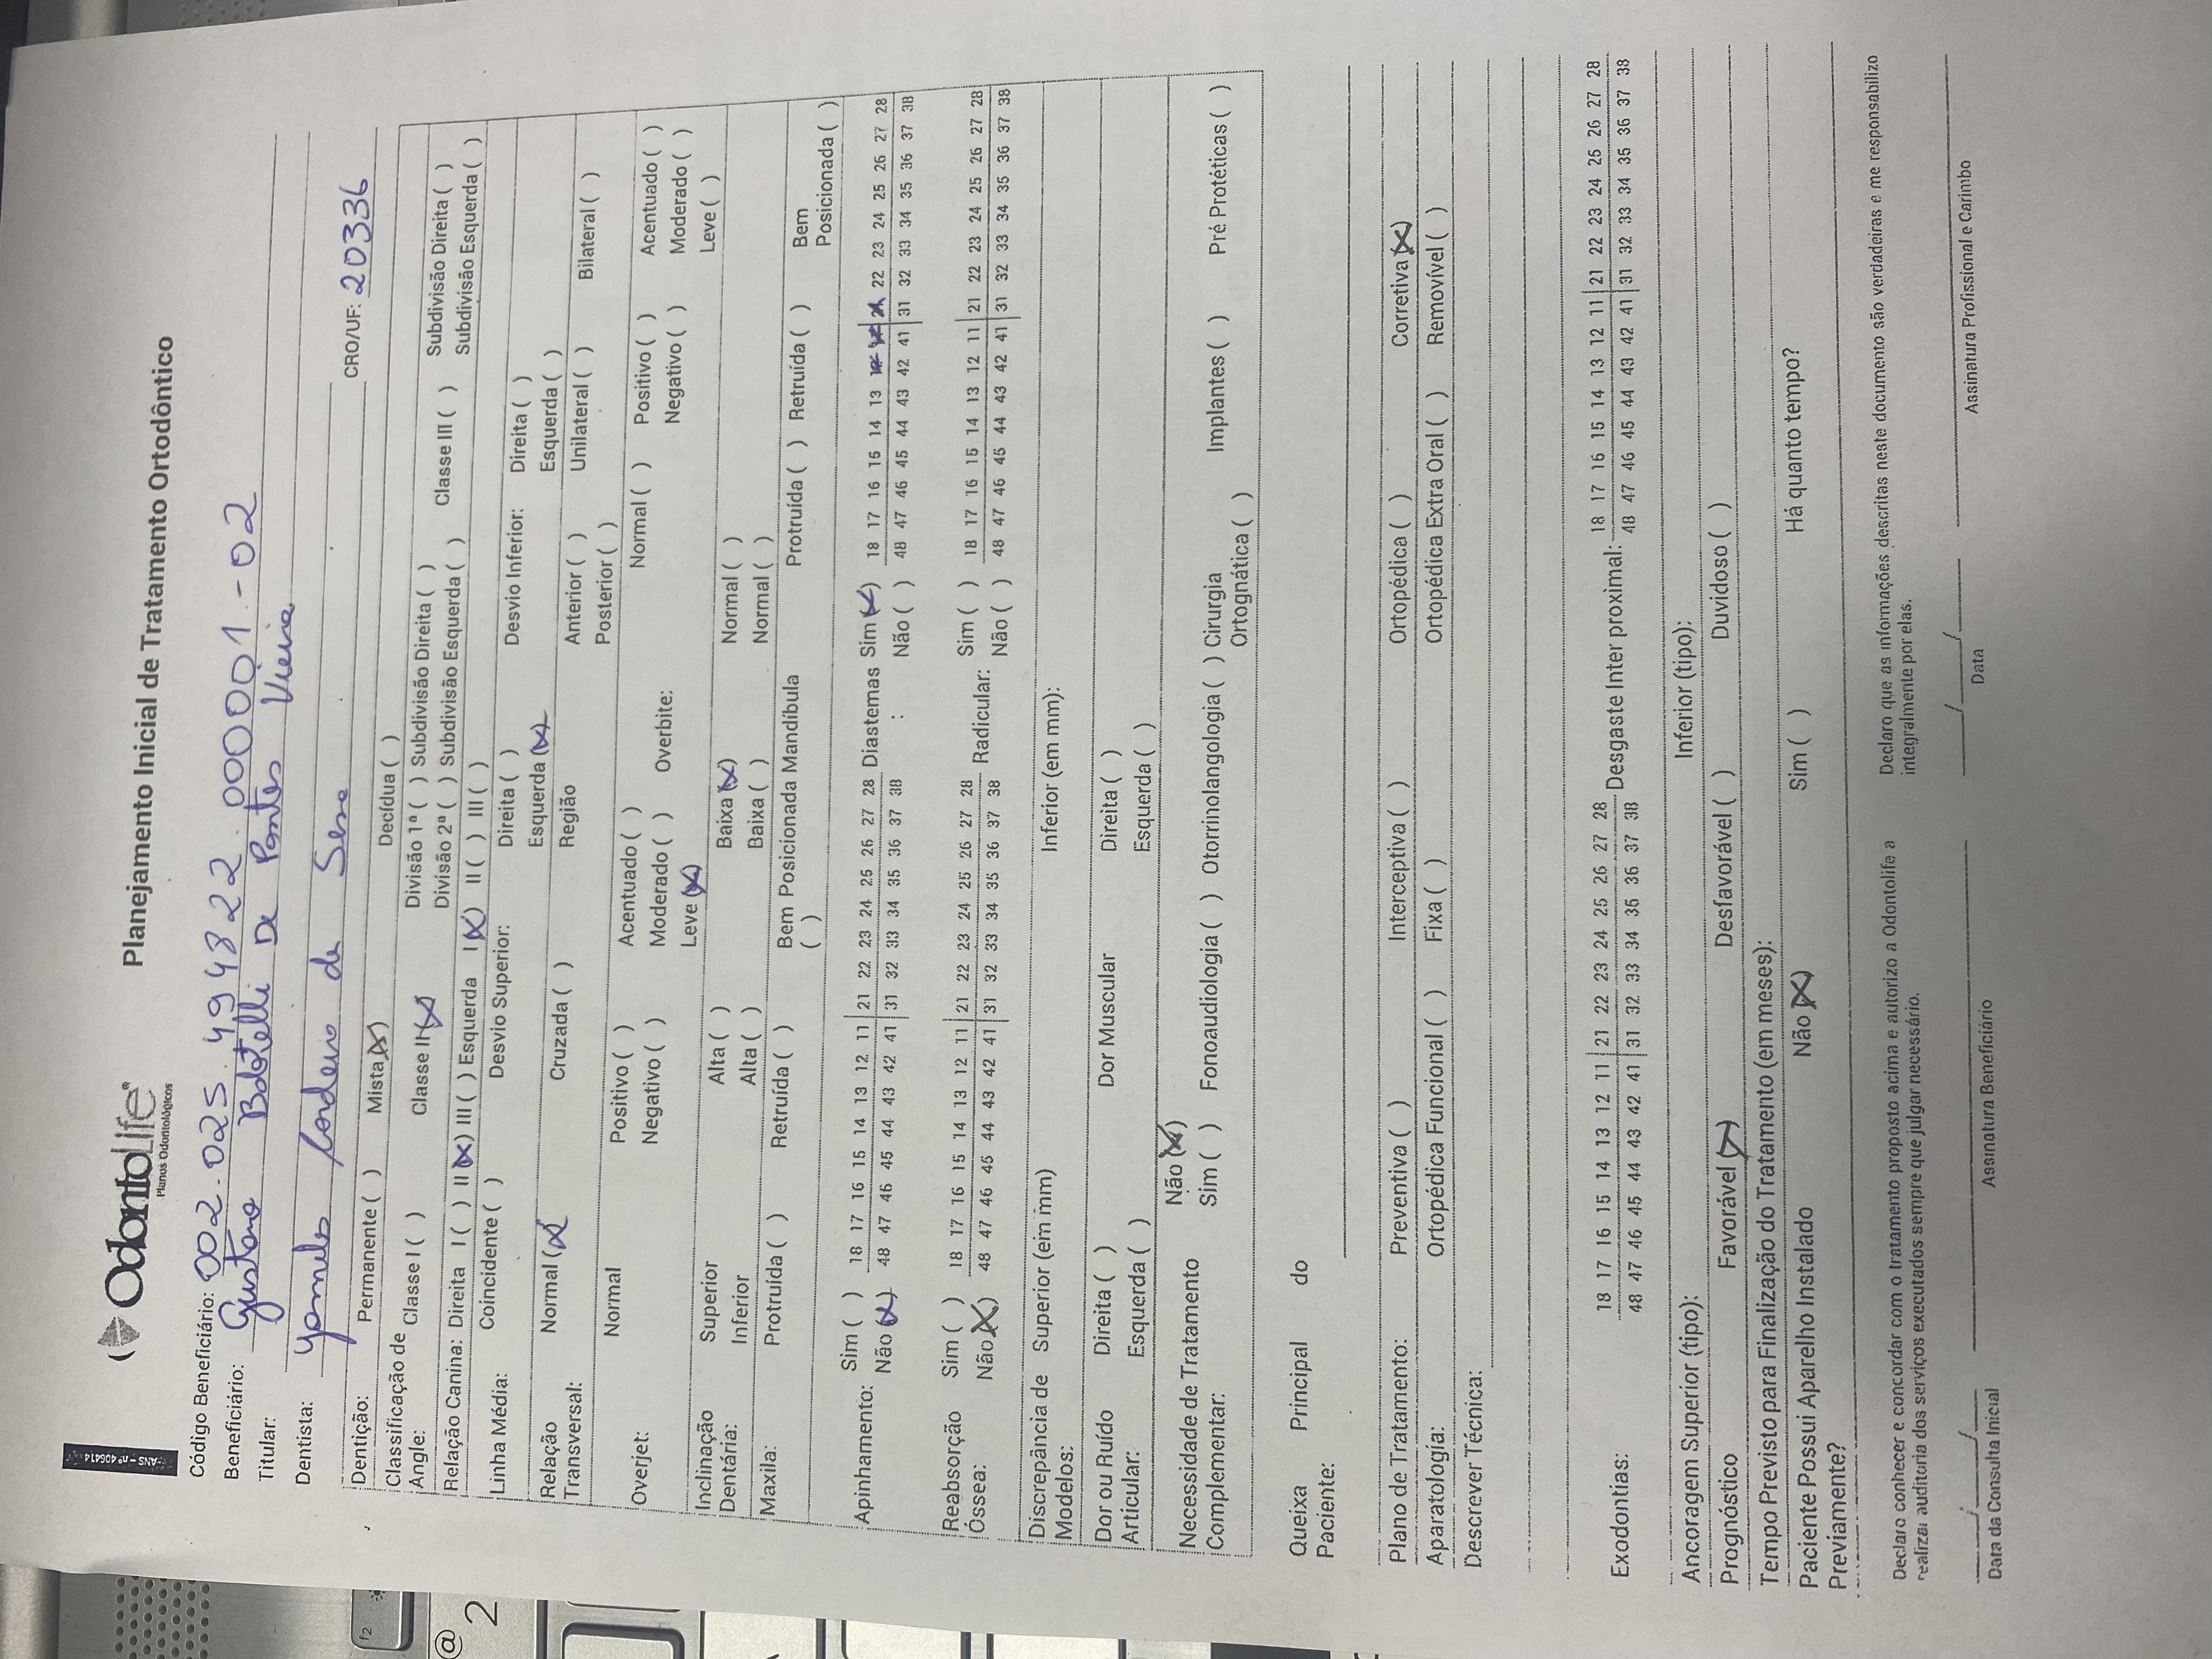 ANS - nº 406414
OdontoLife
Planos Odontológicos
Planejamento Inicial de Tratamento Ortodôntico
Código Beneficiário: 002.025.494822.000001-02
Beneficiário: Gustavo Botelli De Pontes Vieira
Titular:
Dentista: Cordeiro de Sene CRO/UF: 20336
Dentição: Permanente ( ) Mista (X) Decídua ( )
Classificação de Angle: Classe I ( ) Classe II (X) Divisão 1ª ( ) Subdivisão Direita ( ) Classe III ( ) Subdivisão Direita ( )
Divisão 2ª ( ) Subdivisão Esquerda ( ) Subdivisão Esquerda ( )
Relação Canina: Direita I ( ) II (X) III ( ) Esquerda I (X) II ( ) III ( )
Linha Média: Coincidente ( ) Desvio Superior: Direita ( ) Desvio Inferior: Direita ( )
Esquerda (X) Esquerda ( )
Relação Transversal: Normal (X) Cruzada ( ) Região Anterior ( ) Unilateral ( ) Bilateral ( )
Posterior ( )
Overjet: Normal Positivo ( ) Acentuado ( ) Overbite: Normal ( ) Positivo ( ) Acentuado ( )
Negativo ( ) Moderado ( ) Negativo ( ) Moderado ( )
Leve (X) Leve ( )
Inclinação Dentária: Superior Alta ( ) Baixa (X) Normal ( )
Inferior Alta ( ) Baixa ( ) Normal ( )
Maxila: Protruída ( ) Retruída ( ) Bem Posicionada ( ) Mandíbula Protruída ( ) Retruída ( ) Bem Posicionada ( )
Apinhamento: Sim ( ) 18 17 16 15 14 13 12 11 | 21 22 23 24 25 26 27 28 Diastemas : Sim (X) 18 17 16 15 14 13 12 11 | 21 22 23 24 25 26 27 28
Não (X) 48 47 46 45 44 43 42 41 | 31 32 33 34 35 36 37 38 Não ( ) 48 47 46 45 44 43 42 41 | 31 32 33 34 35 36 37 38
Reabsorção Óssea: Sim ( ) 18 17 16 15 14 13 12 11 | 21 22 23 24 25 26 27 28 Radicular: Sim ( ) 18 17 16 15 14 13 12 11 | 21 22 23 24 25 26 27 28
Não (X) 48 47 46 45 44 43 42 41 | 31 32 33 34 35 36 37 38 Não ( ) 48 47 46 45 44 43 42 41 | 31 32 33 34 35 36 37 38
Discrepância de Modelos: Superior (em mm) Inferior (em mm):
Dor ou Ruído Articular: Direita ( ) Dor Muscular Direita ( )
Esquerda ( ) Esquerda ( )
Necessidade de Tratamento Complementar: Não (X)
Sim ( ) Fonoaudiologia ( ) Otorrinolangologia ( ) Cirurgia Ortognática ( ) Implantes ( ) Pré Protéticas ( )
Queixa Principal do Paciente:
Plano de Tratamento: Preventiva ( ) Interceptiva ( ) Ortopédica ( ) Corretiva (X)
Aparatologia: Ortopédica Funcional ( ) Fixa ( ) Ortopédica Extra Oral ( ) Removível ( )
Descrever Técnica:
Exodontias: 18 17 16 15 14 13 12 11 | 21 22 23 24 25 26 27 28 Desgaste Inter proximal: 18 17 16 15 14 13 12 11 | 21 22 23 24 25 26 27 28
48 47 46 45 44 43 42 41 | 31 32 33 34 35 36 37 38 48 47 46 45 44 43 42 41 | 31 32 33 34 35 36 37 38
Ancoragem Superior (tipo): Inferior (tipo):
Prognóstico Favorável (X) Desfavorável ( ) Duvidoso ( )
Tempo Previsto para Finalização do Tratamento (em meses):
Paciente Possui Aparelho Instalado Previamente? Não (X) Sim ( ) Há quanto tempo?
Declaro conhecer e concordar com o tratamento proposto acima e autorizo a Odontolife a
realizar auditoria dos serviços executados sempre que julgar necessário.
Declaro que as informações descritas neste documento são verdadeiras e me responsabilizo
integralmente por elas.
Data da Consulta Inicial Assinatura Beneficiário Data Assinatura Profissional e Carimbo
f2
@
2